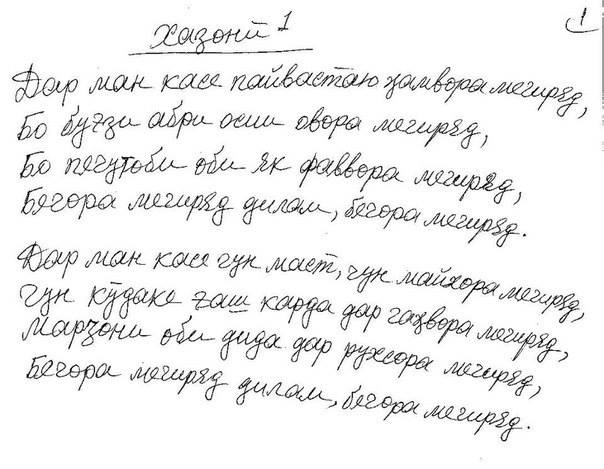 Хазонӣ 1
1
Дар ман касе пайвастаю ҳамвора мегиряд,
Бо буғзи абри осии овора мегиряд,
Бо печутоби оби як фаввора мегиряд,
Бечора мегиряд дилам, бечора мегиряд.
Дар ман касе чун маст, чун майхора мегиряд,
Чун кӯдаке ғаш карда дар гаҳвора мегиряд,
Марҷони оби дида дар рухсора мегиряд,
Бечора мегиряд дилам, бечора мегиряд.